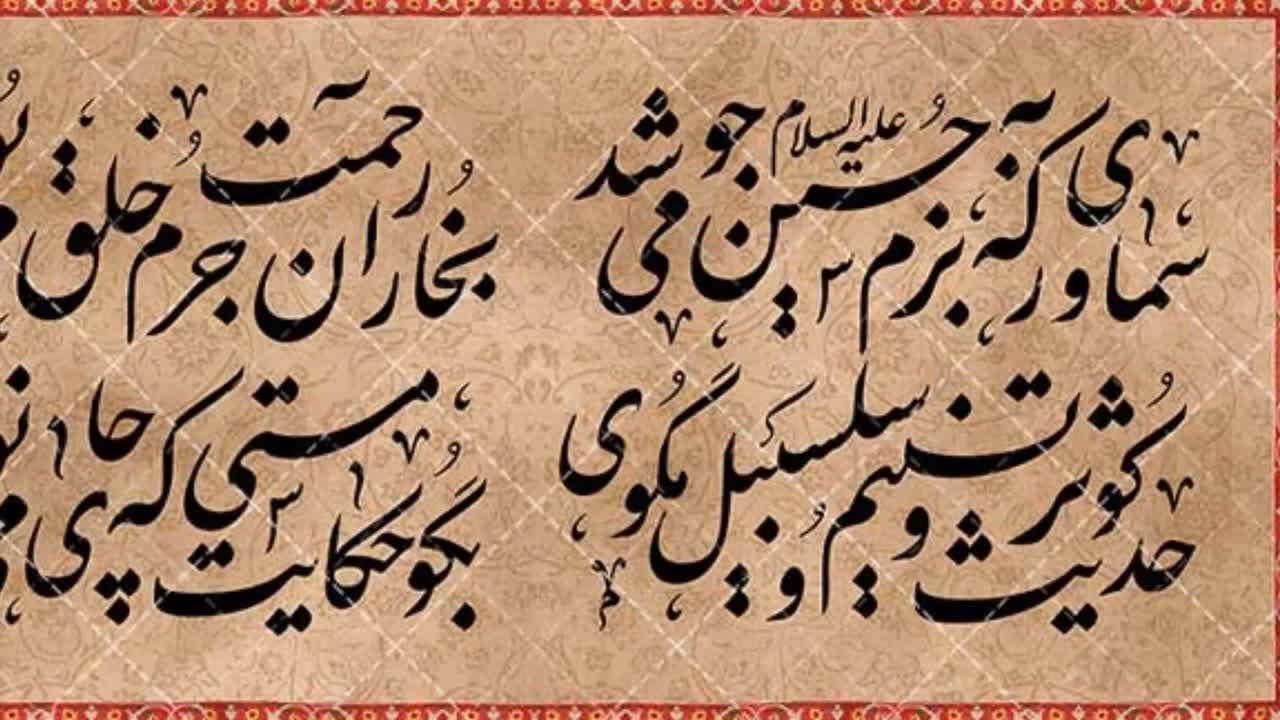 سماوری که بزم حسین علیه السلام می جوشد بخار رحمت آن جرم خلق
حدیث کوثر و تسنیم و سلسبیل مگوی بگو حکایت مستی که چای